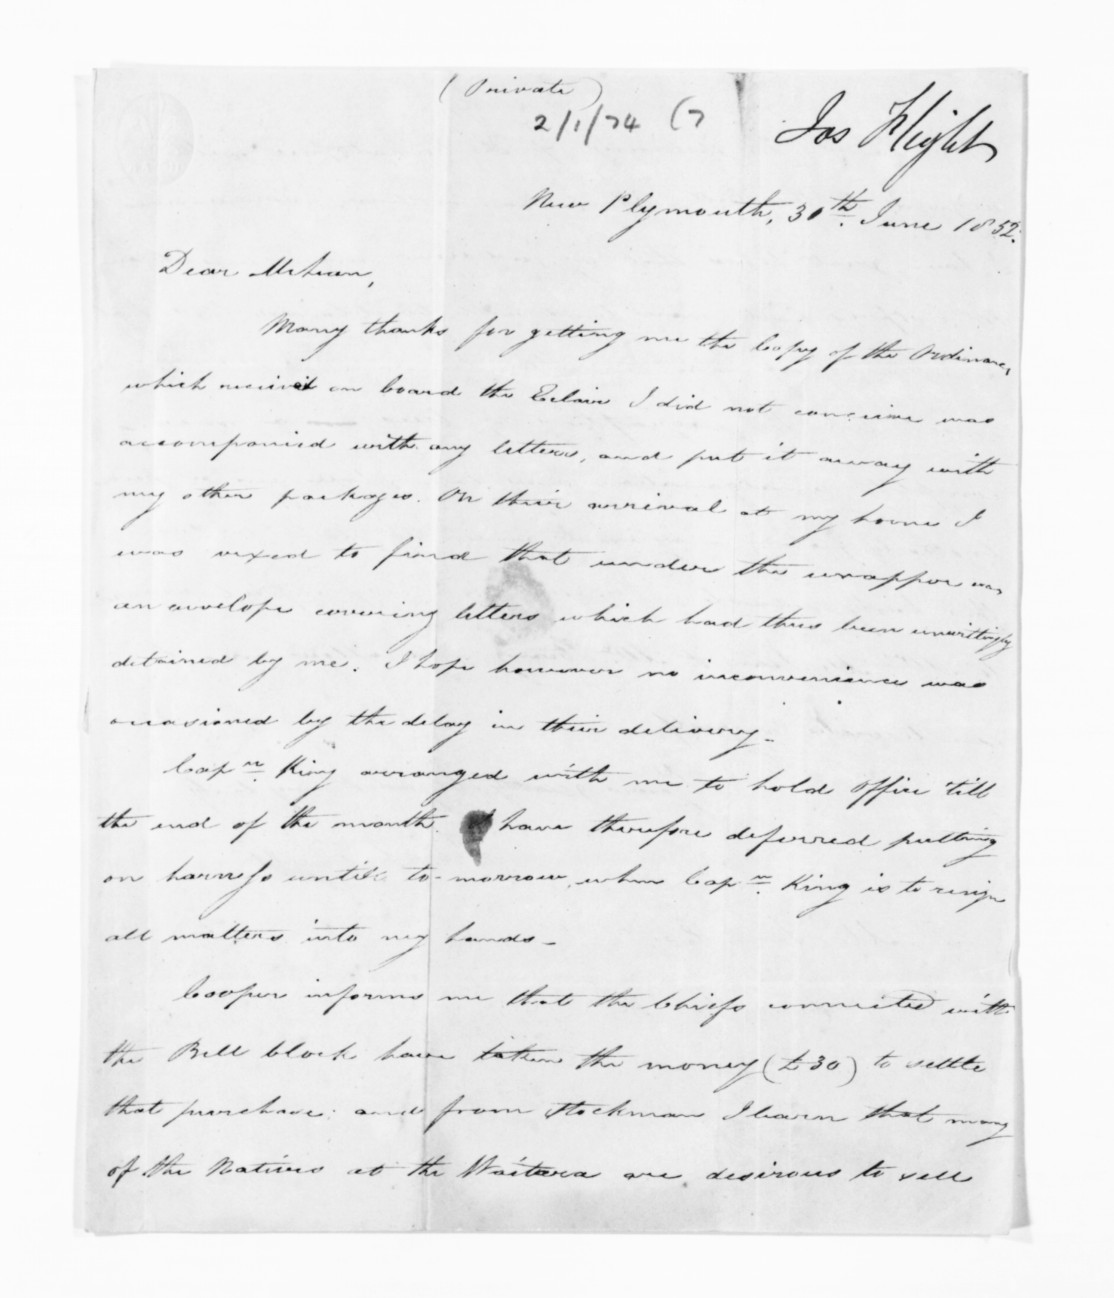 (Private)
2/1/74 (7
Jos Flight
New Plymouth, 30th. June 1852.
Dear McLean,
Many thanks for getting me the Copy of the Ordinance,
which received on board the Eclair I did not conceive was
accompanied with any letters, and put it away with
my other packages. On their arrival at my home I
was vexed to find that under the wrapper was
an envelope covering letters which had thus been unwittingly
detained by me. I hope however no inconvenience was
occasioned by the delay in their delivery_
Capn. King arranged with me to hold office 'till
the end of the month. I have therefore deferred putting
on harness until to-morrow, when Capn. King is to resign
all matters into my hands_
Cooper informs me that the Chiefs connected with
the Bell block have taken the money (£30) to settle
that purchase: and from Stockman I learn that many
of the Natives at the Waitara are desirous to sell